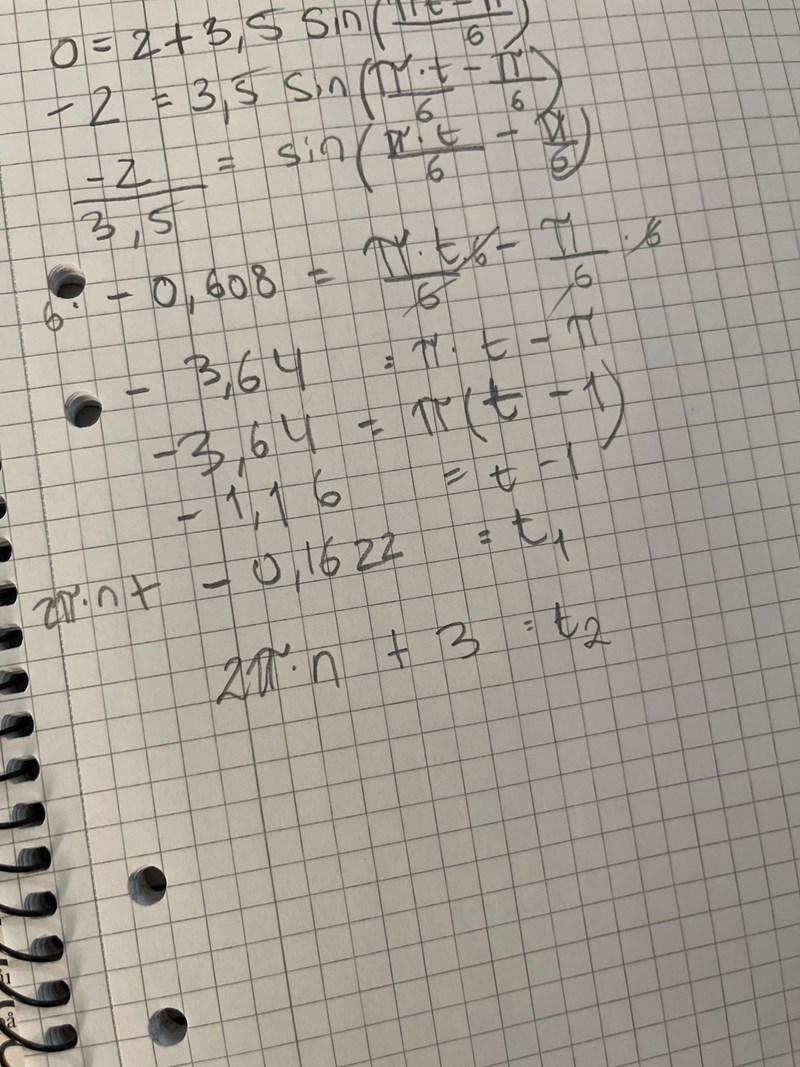 0 = 2 + 3,5 sin(πt - π / 6)
-2 = 3,5 sin(π·t/6 - π/6)
-2/3,5 = sin(π·t/6 - π/6)
6· -0,608 = π·t/6 ·6 - π/6 ·6
- 3,64 = π· t - π
-3,64 = π(t - 1)
- 1,16 = t - 1
2π·n + - 0,1622 = t₁
2π·n + 3 = t₂
å